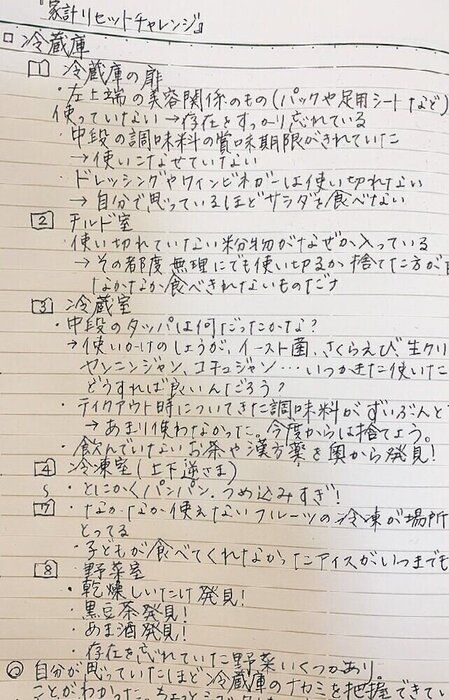 『家計リセットチャレンジ』
□ 冷蔵庫
1 冷蔵庫の扉
・左上端の美容関係のもの(パックや足用シートなど)
使っていない→存在をすっかり忘れている
・中段の調味料の賞味期限がきれていた
→使いこなせていない
・ドレッシングやワインビネガーは使い切れない
→自分で思っているほどサラダを食べない
2 チルド室
・使い切れていない粉物がなぜか入っている
→その都度無理にでも使い切るか捨てた方が
なかなか食べきれないものだナ
3 冷蔵室
・中段のタッパは何だったかな?
→使いかけのしょうが、イースト菌、さくらえび、生クリ
ヤンニンジャン、コチュジャン…いつかまた使いた
どうすれば良いんだろう?
・テイクアウト時についてきた調味料がずいぶんと
→あまり使わなかった。今度からは捨てよう。
・飲んでいないお茶や漢方薬を奥から発見!
4 冷凍室(上下逆さま)
〜 ・とにかくパンパン。つめ込みすぎ!
・なかなか使えないフルーツの冷凍が場所
とってる
・子どもが食べてくれなかったアイスがいつまでも
8 野菜室
・乾燥しいたけ発見!
・黒豆茶発見!
・あま酒発見!
・存在を忘れていた野菜いくつかあり
◎ 自分が思っていたほど冷蔵庫のナカミを把握できてい
ことがわかった